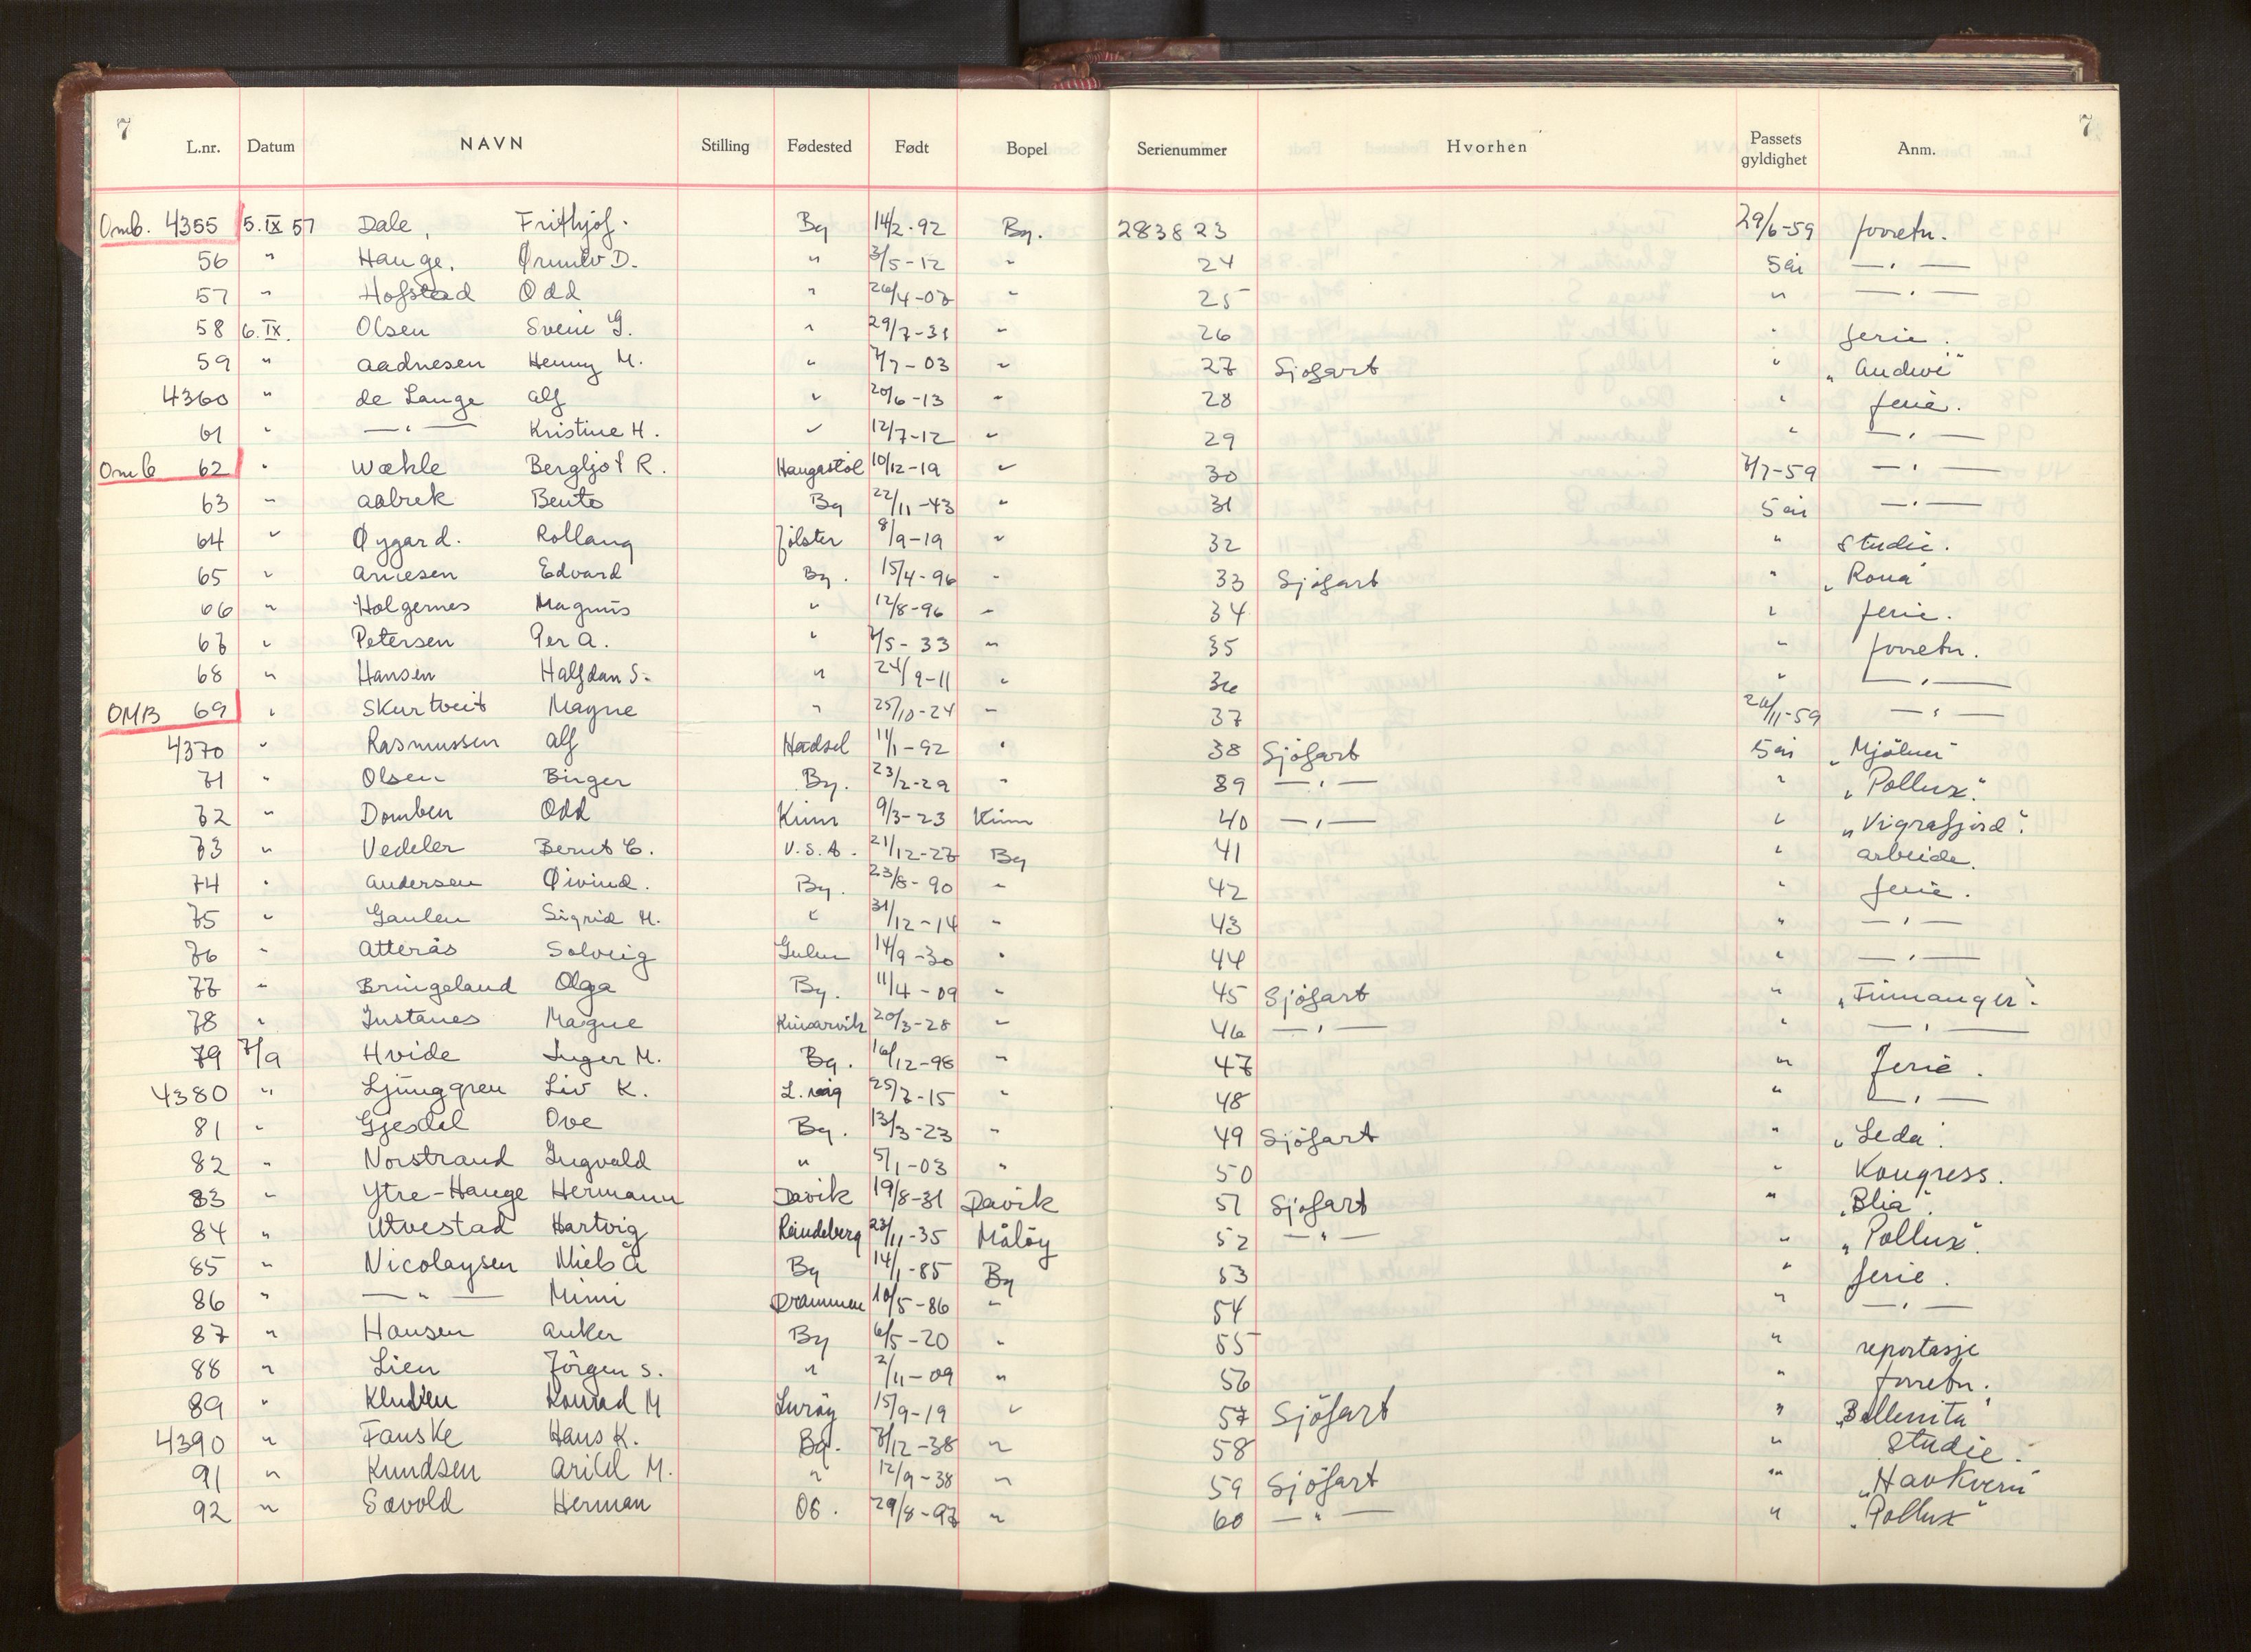 7 7
L.nr. Datum NAVN Stilling Fødested Født Bopel Serienummer Hvorhen Passets gyldighet Anm.
Omb. 4355 5.IX 57 Dale, Frithjof. Bg 14/2-92 Bg. 283823 29/6-59 forretn.
56 " Hauge, D. " 3/5-12 " 24 5 år — " —
57 " Hofstad Odd " 26/4-07 " 25 " — " —
58 6.IX. Olsen Svein G. " 29/7-31 " 26 " ferie.
59 " Aadnesen Henny M. " 7/7-03 " 27 Sjöfart "
4360 " de Lange Alf " 20/6-13 " 28 " ferie.
61 " — " — Kristine H. " 12/7-12 " 29 " — " —
Omb 62 " Wæhle Bergljot R. Haugastöl 10/12-19 " 30 7/7-59 — " —
63 " Aabrek Bente Bg 22/11-43 " 31 5 år — " —
64 " Øygard. Rollaug Jölster 8/9-19 " 32 " Studie.
65 " Arnesen Edvard Bg. 15/4-96 " 33 Sjöfart " "Rona"
66 " Holgernes Magnus " 12/8-96 " 34 " ferie.
67 " Petersen Per A. " 7/5-33 " 35 " forretn.
68 " Hansen Halfdan S. " 24/9-11 " 36 " — " —
OMB 69 " Skurtveit Magne " 25/10-24 " 37 26/11-59 — " —
4370 " Rasmussen Alf Hadsel 11/1-92 " 38 Sjöfart 5 år "Mjölner"
71 " Olsen Birger Bg. 23/2-29 " 39 — " — " "Pollux".
72 " Domben Odd Kinn 9/3-23 Kinn 40 — " — " "Vigrafjord".
73 " Vedeler Bernt C. U.S.A. 21/12-27 Bg 41 " arbeide.
74 " Andersen Øivind. Bg. 23/8-90 " 42 " ferie.
75 " Gaulen Sigrid M. " 31/12-14 " 43 " — " —
76 " Atterås Solveig Gulen 14/9-30 " 44 " — " —
77 " Bringeland Olga Bg. 11/4-09 " 45 Sjöfart " "Finnanger".
78 " Instanes Magne Kinsarvik 20/3-28 " 46 — " — " — " —
79 7/9 Hvide Inger M. Bg. 16/12-98 " 47 " Ferie.
4380 " Ljunggren Liv K. L.våg 25/7-15 " 48 " — " —
81 " Gjesdal Ove Bg. 13/3-23 " 49 Sjöfart " "Leda".
82 " Norstrand Ingvald " 5/1-03 " 50 " Kongress.
83 " Ytre-Hauge Hermann Davik 19/8-31 Davik 51 Sjöfart " "Blia".
84 " Utvestad Hartvig 23/11-35 Målöy 52 — " — " "Pollux".
85 " Nicolaysen Niels Å Bg 14/1-85 Bg 53 " ferie.
86 " — " — Mimi Drammen 10/5-86 " 54 " — " —
87 " Hansen Anker Bg 6/5-20 " 55 " reportasje
88 " Lien Jörgen S. " 2/11-09 " 56 " forretn.
89 " Konrad M Luröy 15/9-19 " 57 Sjöfart " "Bellenita"
4390 " Fauske Hans K. Bg. 7/12-38 " 58 " Studie.
91 " Knudsen Arild M. " 12/9-38 " 59 Sjöfart " "Havkvern"
92 " Sævold Herman Os. 29/8-97 " 60 — " — " "Pollux"